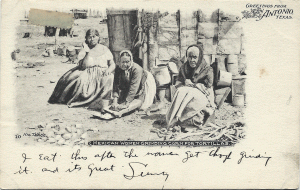 GREETINGS FROM
SAN ANTONIO
TEXAS.
MEXICAN WOMEN GRINDING CORN FOR TORTILLAS.
I Eat this after the women get through grinding
it and its Great